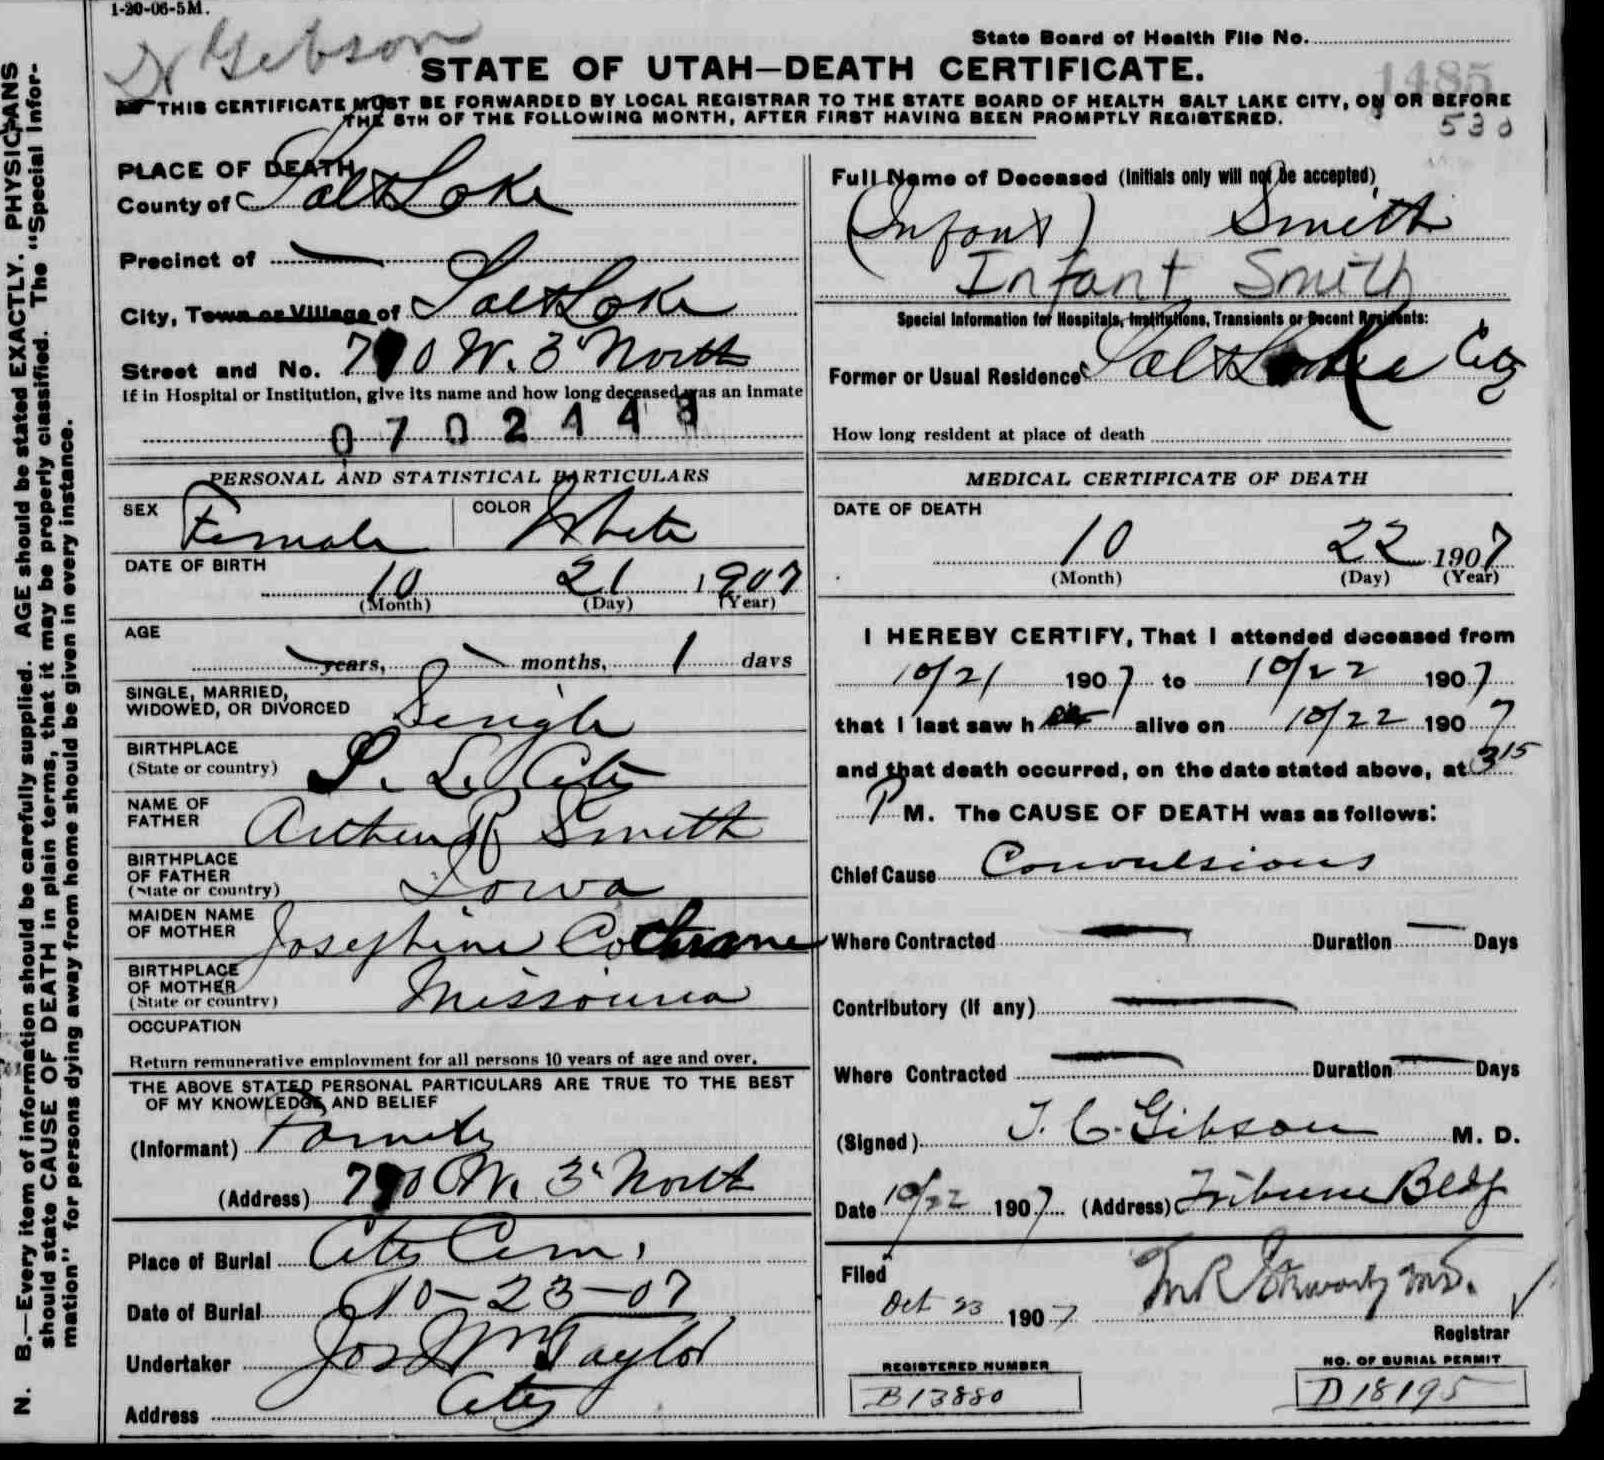 1-20-06-5M.
Dr Gibson
State Board of Health File No.
1485
STATE OF UTAH—DEATH CERTIFICATE.
THIS CERTIFICATE MUST BE FORWARDED BY LOCAL REGISTRAR TO THE STATE BOARD OF HEALTH SALT LAKE CITY, ON OR BEFORE
THE 5TH OF THE FOLLOWING MONTH, AFTER FIRST HAVING BEEN PROMPTLY REGISTERED.
530
PLACE OF DEATH
County of Salt Lake
Precinct of —
City, Town or Village of Salt Lake
Street and No. 0 W. 3d North
If in Hospital or Institution, give its name and how long deceased was an inmate
0702448
PERSONAL AND STATISTICAL PARTICULARS
SEX Female COLOR White
DATE OF BIRTH
10 21 1907
(Month) (Day) (Year)
AGE
years, months, 1 days
SINGLE, MARRIED,
WIDOWED, OR DIVORCED Single
BIRTHPLACE
(State or country) S. L. City
NAME OF
FATHER Arthur R Smith
BIRTHPLACE
OF FATHER
(State or country) Iowa
MAIDEN NAME
OF MOTHER Josephine Cochrane
BIRTHPLACE
OF MOTHER
(State or country) Missouria
OCCUPATION
Return remunerative employment for all persons 10 years of age and over.
THE ABOVE STATED PERSONAL PARTICULARS ARE TRUE TO THE BEST
OF MY KNOWLEDGE AND BELIEF
(Informant) Family
(Address) W. 3d North
Place of Burial City Cem.
Date of Burial 10-23-07
Undertaker Jos Wm Taylor
Address City
Full Name of Deceased (Initials only will not be accepted)
(Infant) Smith
Infant Smith
Special Information for Hospitals, Institutions, Transients or Recent Residents:
Former or Usual Residence Salt Lake City
How long resident at place of death
MEDICAL CERTIFICATE OF DEATH
DATE OF DEATH
10 22 1907
(Month) (Day) (Year)
I HEREBY CERTIFY, That I attended deceased from
10/21 1907 to 10/22 1907
that I last saw her alive on 10/22 1907
and that death occurred, on the date stated above, at 3 15
P M. The CAUSE OF DEATH was as follows:
Chief Cause Convulsions
Where Contracted — Duration — Days
Contributory (If any) —
Where Contracted — Duration — Days
(Signed) T. C. Gibson M. D.
Date 10/22 1907 (Address) Tribune Bldg
Filed
Oct 23 1907 M R Stewart MD.
Registrar
REGISTERED NUMBER
B13880
NO. OF BURIAL PERMIT
D18195
N. B.—Every item of information should be carefully supplied. AGE should be stated EXACTLY. PHYSICIANS
should state CAUSE OF DEATH in plain terms, that it may be properly classified. The "Special Infor-
mation" for persons dying away from home should be given in every instance.